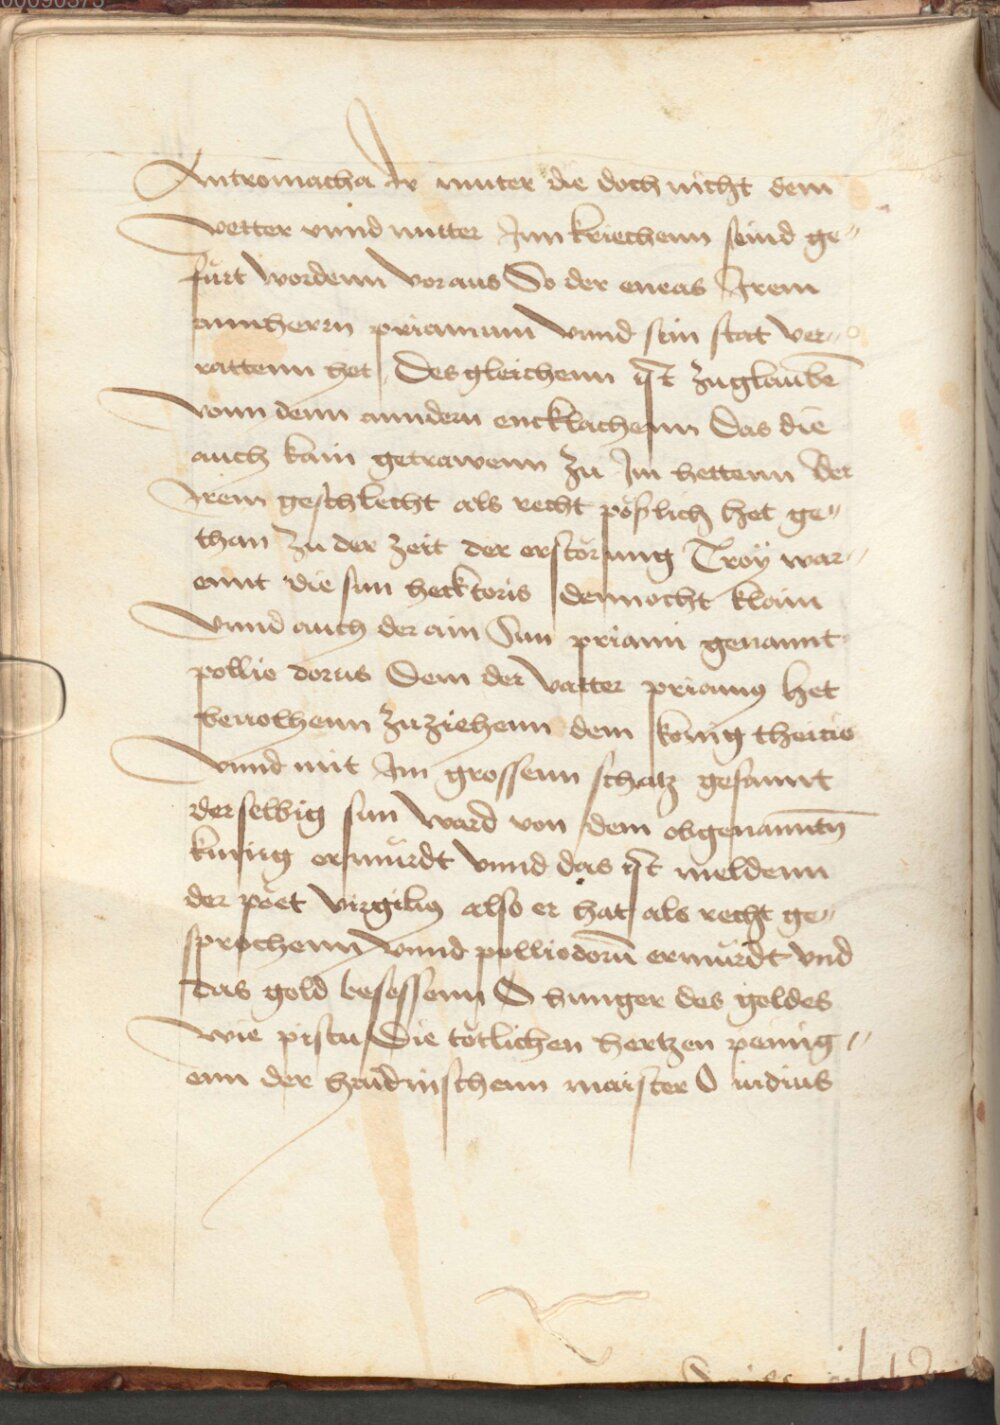 Antromacha Ir muter die doch nicht dem
vetter vnnd mutter Inn kriechenn seind ge"
fürt wordenn Voraus So der eneas Irem
annherrn priamum vnnd sein stat ver"
rattenn het Desgleichenn ist zuglaubē
vonn denn anndern encklachenn Das die
auch kain getrawenn zu Im hettenn der
Irem geschlecht als recht pöslich het ge"
than zu der zeit der erstörung Troÿ war"
ennt die sun hecktoris dennocht klain
vnnd auch der ain Sun priami genannt
pollio dorus Dem der vatter priamus het
beuolhenn zuziehenn dem konig
vnnd mit Im grossenn schatz gesannt
derselbig sun ward von dem obgenanntn̄
kunig ermürdt vnnd das ist meldenn
der poet virgilius also er hat als recht ge"
sprochenn vnnd polliodorū ermürdt vnd
das gold besessenn O hunger des goldes
wie pistu Die tötlichen hertzen peinig"
enn der haidnischenn maister Ouidius